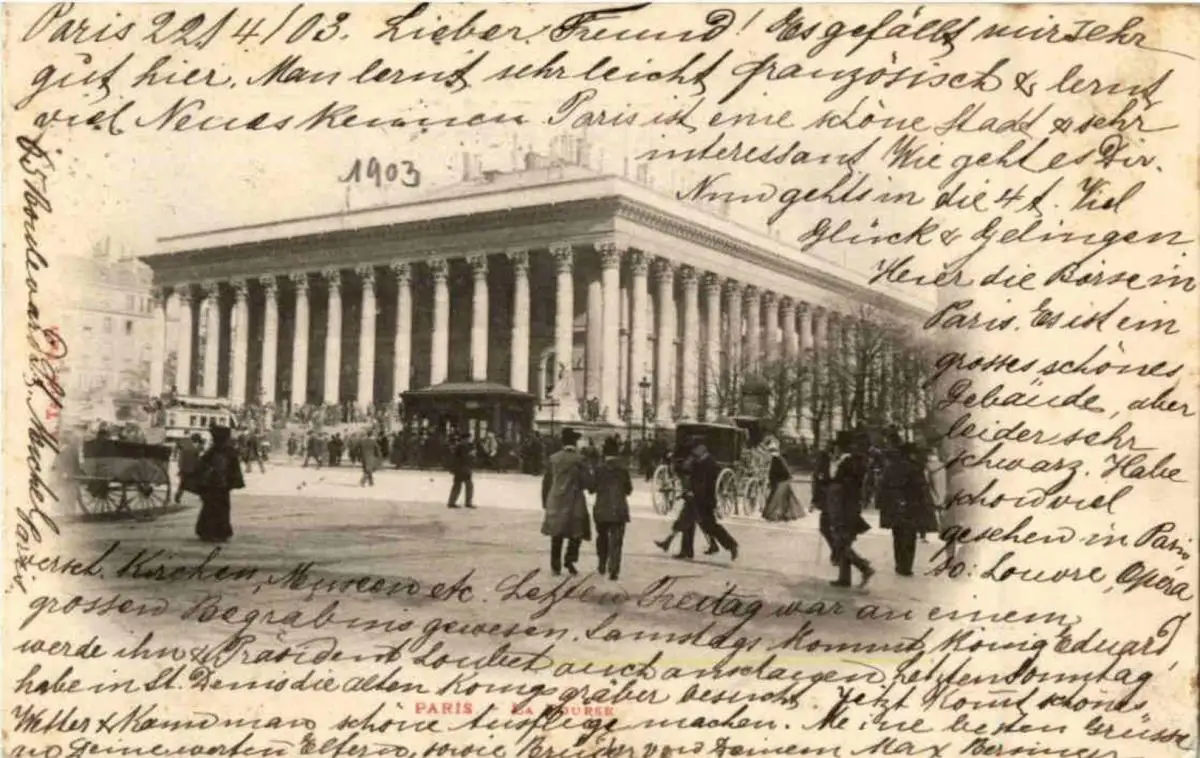 Paris 22/4/03. Lieber Freund! Es gefällt mir sehr
gut hier. Man lernt sehr leicht französisch & lernt
viel Neues kennen. Paris ist eine schöne Stadt & sehr
interessant. Wie geht es Dir.
1903
Nun gehts in die 4t. Viel
Glück & Gelingen.
Heier die Börse in
Paris. Es ist ein
grosses schönes
Gebäude, aber
leider sehr
schwarz. Habe
schon viel
gesehen in Paris
so: Louvre, Opéra
versch. Kirchen, Museen etc. Letzten Freitag war an einem
grossen Begräbnis gewesen. Samstags kommt König Eduard,
werde ihn & Präsident Loubet auch anschauen. Letzten Sonntag
habe in St. Denis die alten Königsgräber besucht. Jetzt kommt schönes
PARIS LA BOURSE
Wetter & kann man schöne Ausflüge machen. Meine besten Grüsse
Deine werten Eltern, sowie Brüder von Deinem Max
65 Boulevard St. Michel Paris